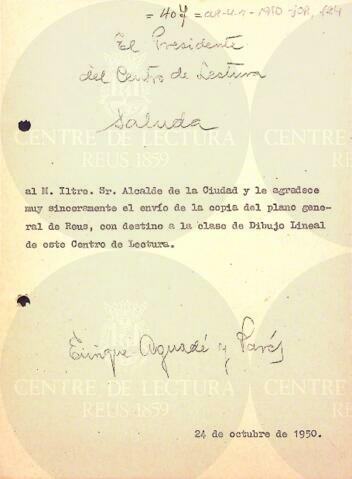 = 407 =
El Presidente
del Centro de Lectura
Saluda
al M. Iltre. Sr. Alcalde de la Ciudad y le agradece
muy sinceramente el envío de la copia del plano gene-
ral de Reus, con destino a la clase de Dibujo Lineal
de este Centro de Lectura.
Enrique Aguadé y Parés
24 de octubre de 1950.
CENTRE DE LECTURA
REUS 1859
CENTRE DE LECTURA
REUS 1859